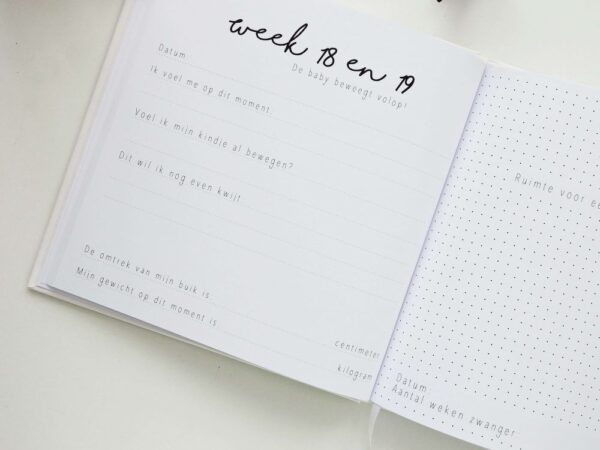 week 18 en 19
De baby beweegt volop!
Datum
Ik voel me op dit moment
Voel ik mijn kindje al bewegen?
Dit wil ik nog even kwijt
De omtrek van mijn buik is
centimeter
Mijn gewicht op dit moment is
kilogram
Ruimte voor
Datum
Aantal weken zwanger